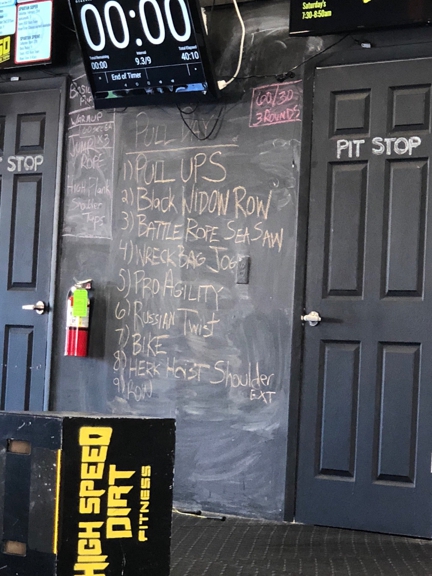 Saturday's
7:30-8:50am
00:00
Total Remaining
00:00
Interval
9.3/9
Total Elapsed
40:10
End of Timer
60/30
3 ROUNDS
WARMUP
ROPE
High Plank
Shoulder
Taps
PULL
1) PULL UPS
2) Black WIDOW ROW
3) BATTLE ROPE SEASAW
4) WRECK BAG JOG
5) PRO AGILITY
6) RUSSIAN TWIST
7) BIKE
8) HERK HOIST Shoulder
EXT
9) ROW
T STOP
PIT STOP
HIGH SPEED
DIRT
FITNESS